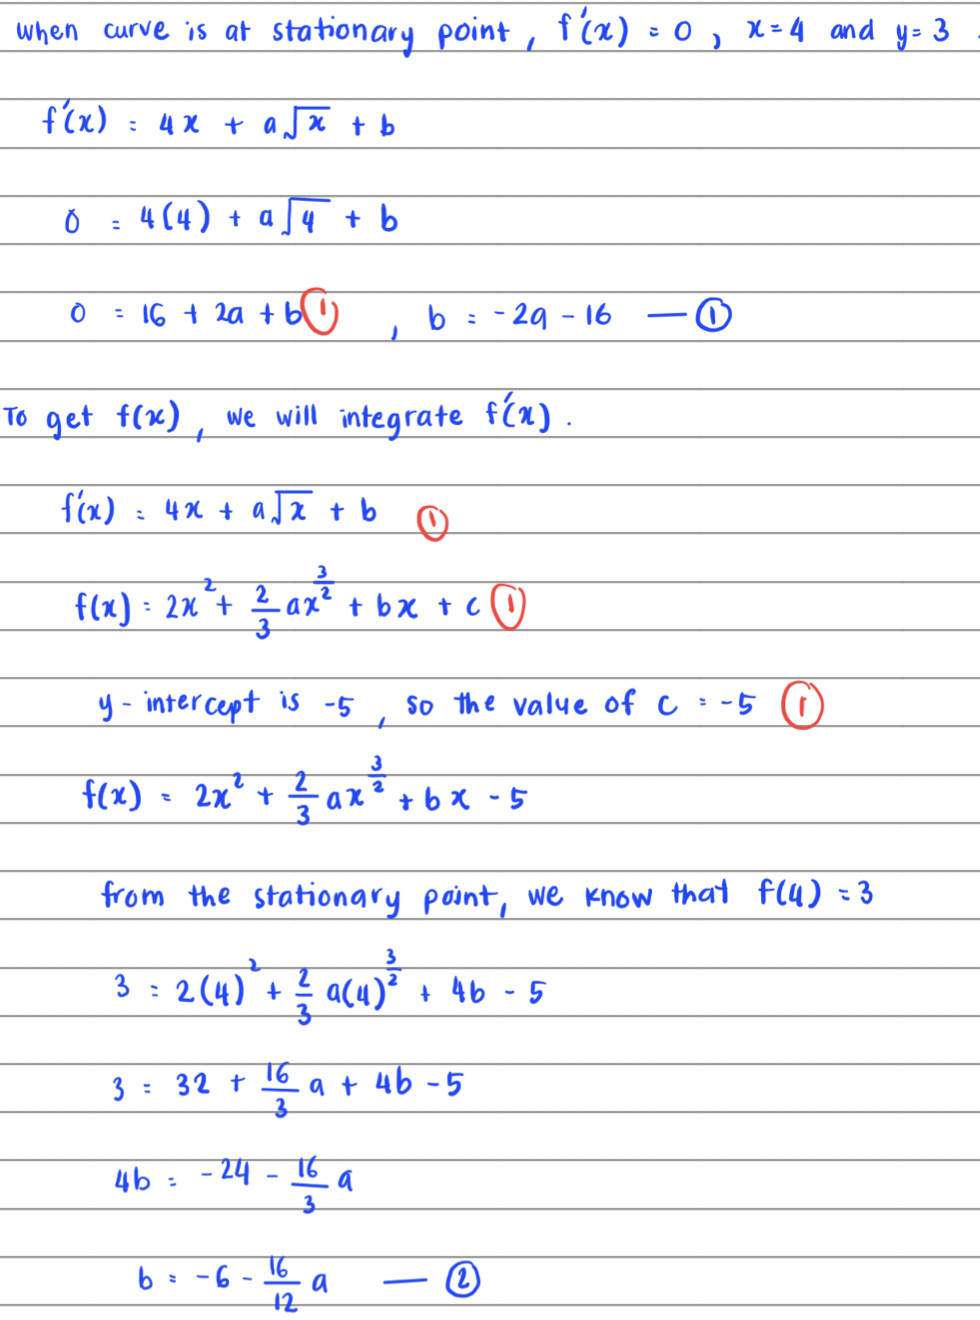 when curve is at stationary point, f'(x) = 0, x=4 and y=3.
f'(x) = 4x + a√x + b
0 = 4(4) + a√4 + b
0 = 16 + 2a + b ① , b = -2a - 16 — ①
To get f(x), we will integrate f'(x).
f'(x) = 4x + a√x + b ①
f(x) = 2x² + 2/3 ax^(3/2) + bx + c ①
y-intercept is -5, so the value of c = -5 ①
f(x) = 2x² + 2/3 ax^(3/2) + bx - 5
from the stationary point, we know that f(4) = 3
3 = 2(4)² + 2/3 a(4)^(3/2) + 4b - 5
3 = 32 + 16/3 a + 4b - 5
4b = -24 - 16/3 a
b = -6 - 16/12 a — ②